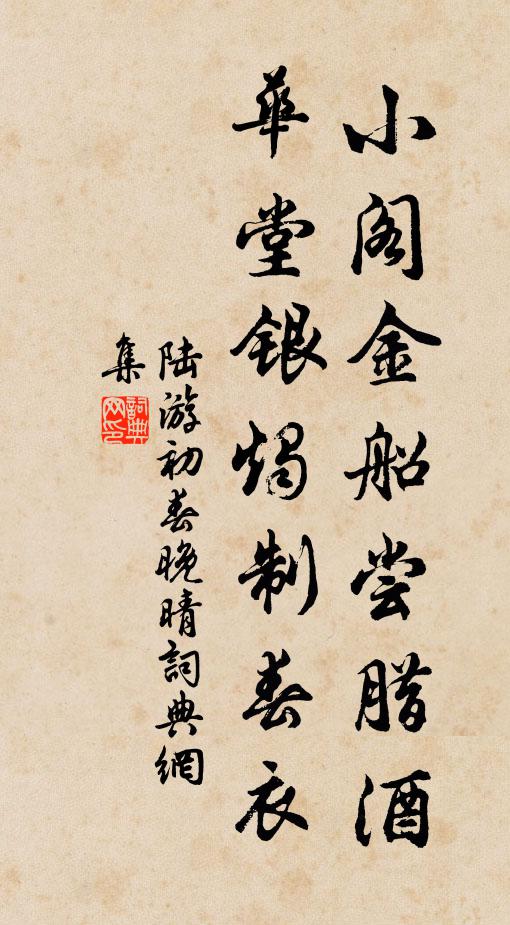 小阁金船尝腊酒
华堂银烛制春衣
陆游初春晚晴詞典網
集
詞典网印